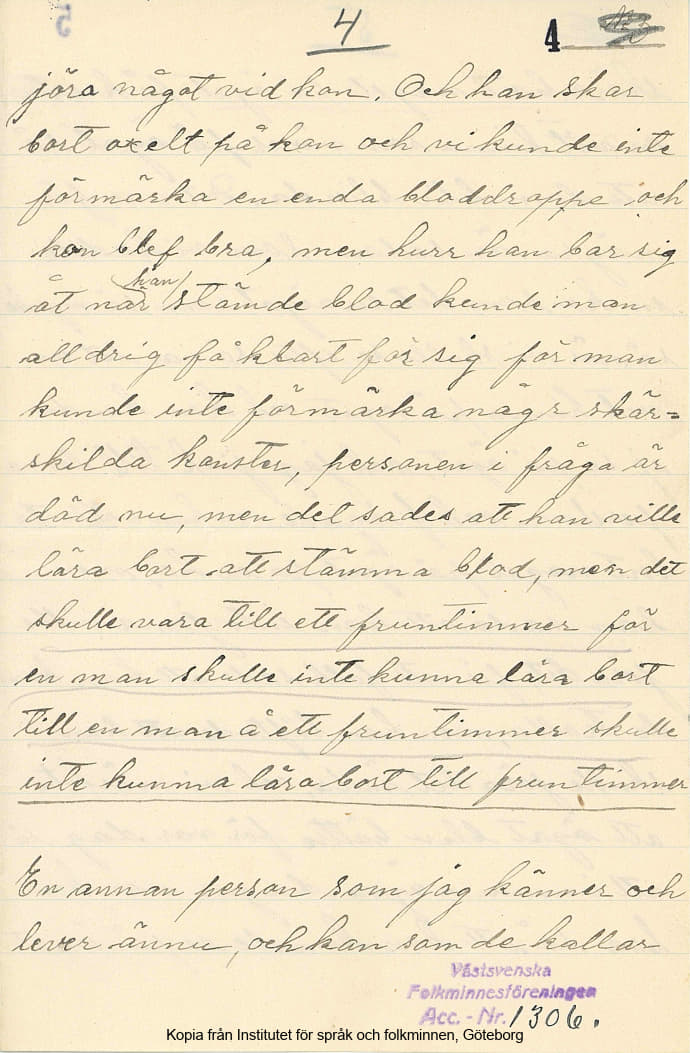 4
4
jöra något vid kon. Och han skar
bort oxelt på kon och vi kunde inte
förmärka en enda bloddroppe och
kon blef bra, men hurr han bar sig
åt när han stämde blod kunde man
alldrig få klart för sig för man
kunde inte förmärka någr skär=
skilda konster, personen i fråga är
död nu, men det sades att han ville
lära bort att stämma blod, men det
skulle vara till ett fruntimmer för
en man skulle inte kunna lära bort
till en man å ett fruntimmer skulle
inte kunna lära bort till fruntimmer
En annan person som jag känner och
lever ännu, och kan som de kallar
Västsvenska
Folkminnesföreningen
Acc. - Nr. 1306.
Kopia från Institutet för språk och folkminnen, Göteborg